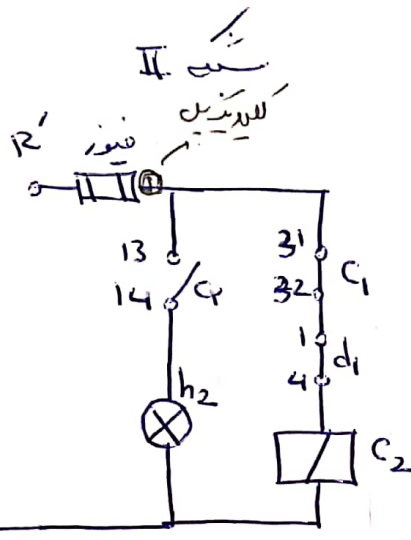 II
کلید تبدیل
R'
فیوز
13
14
h2
31
32
C1
1
4
d1
C2